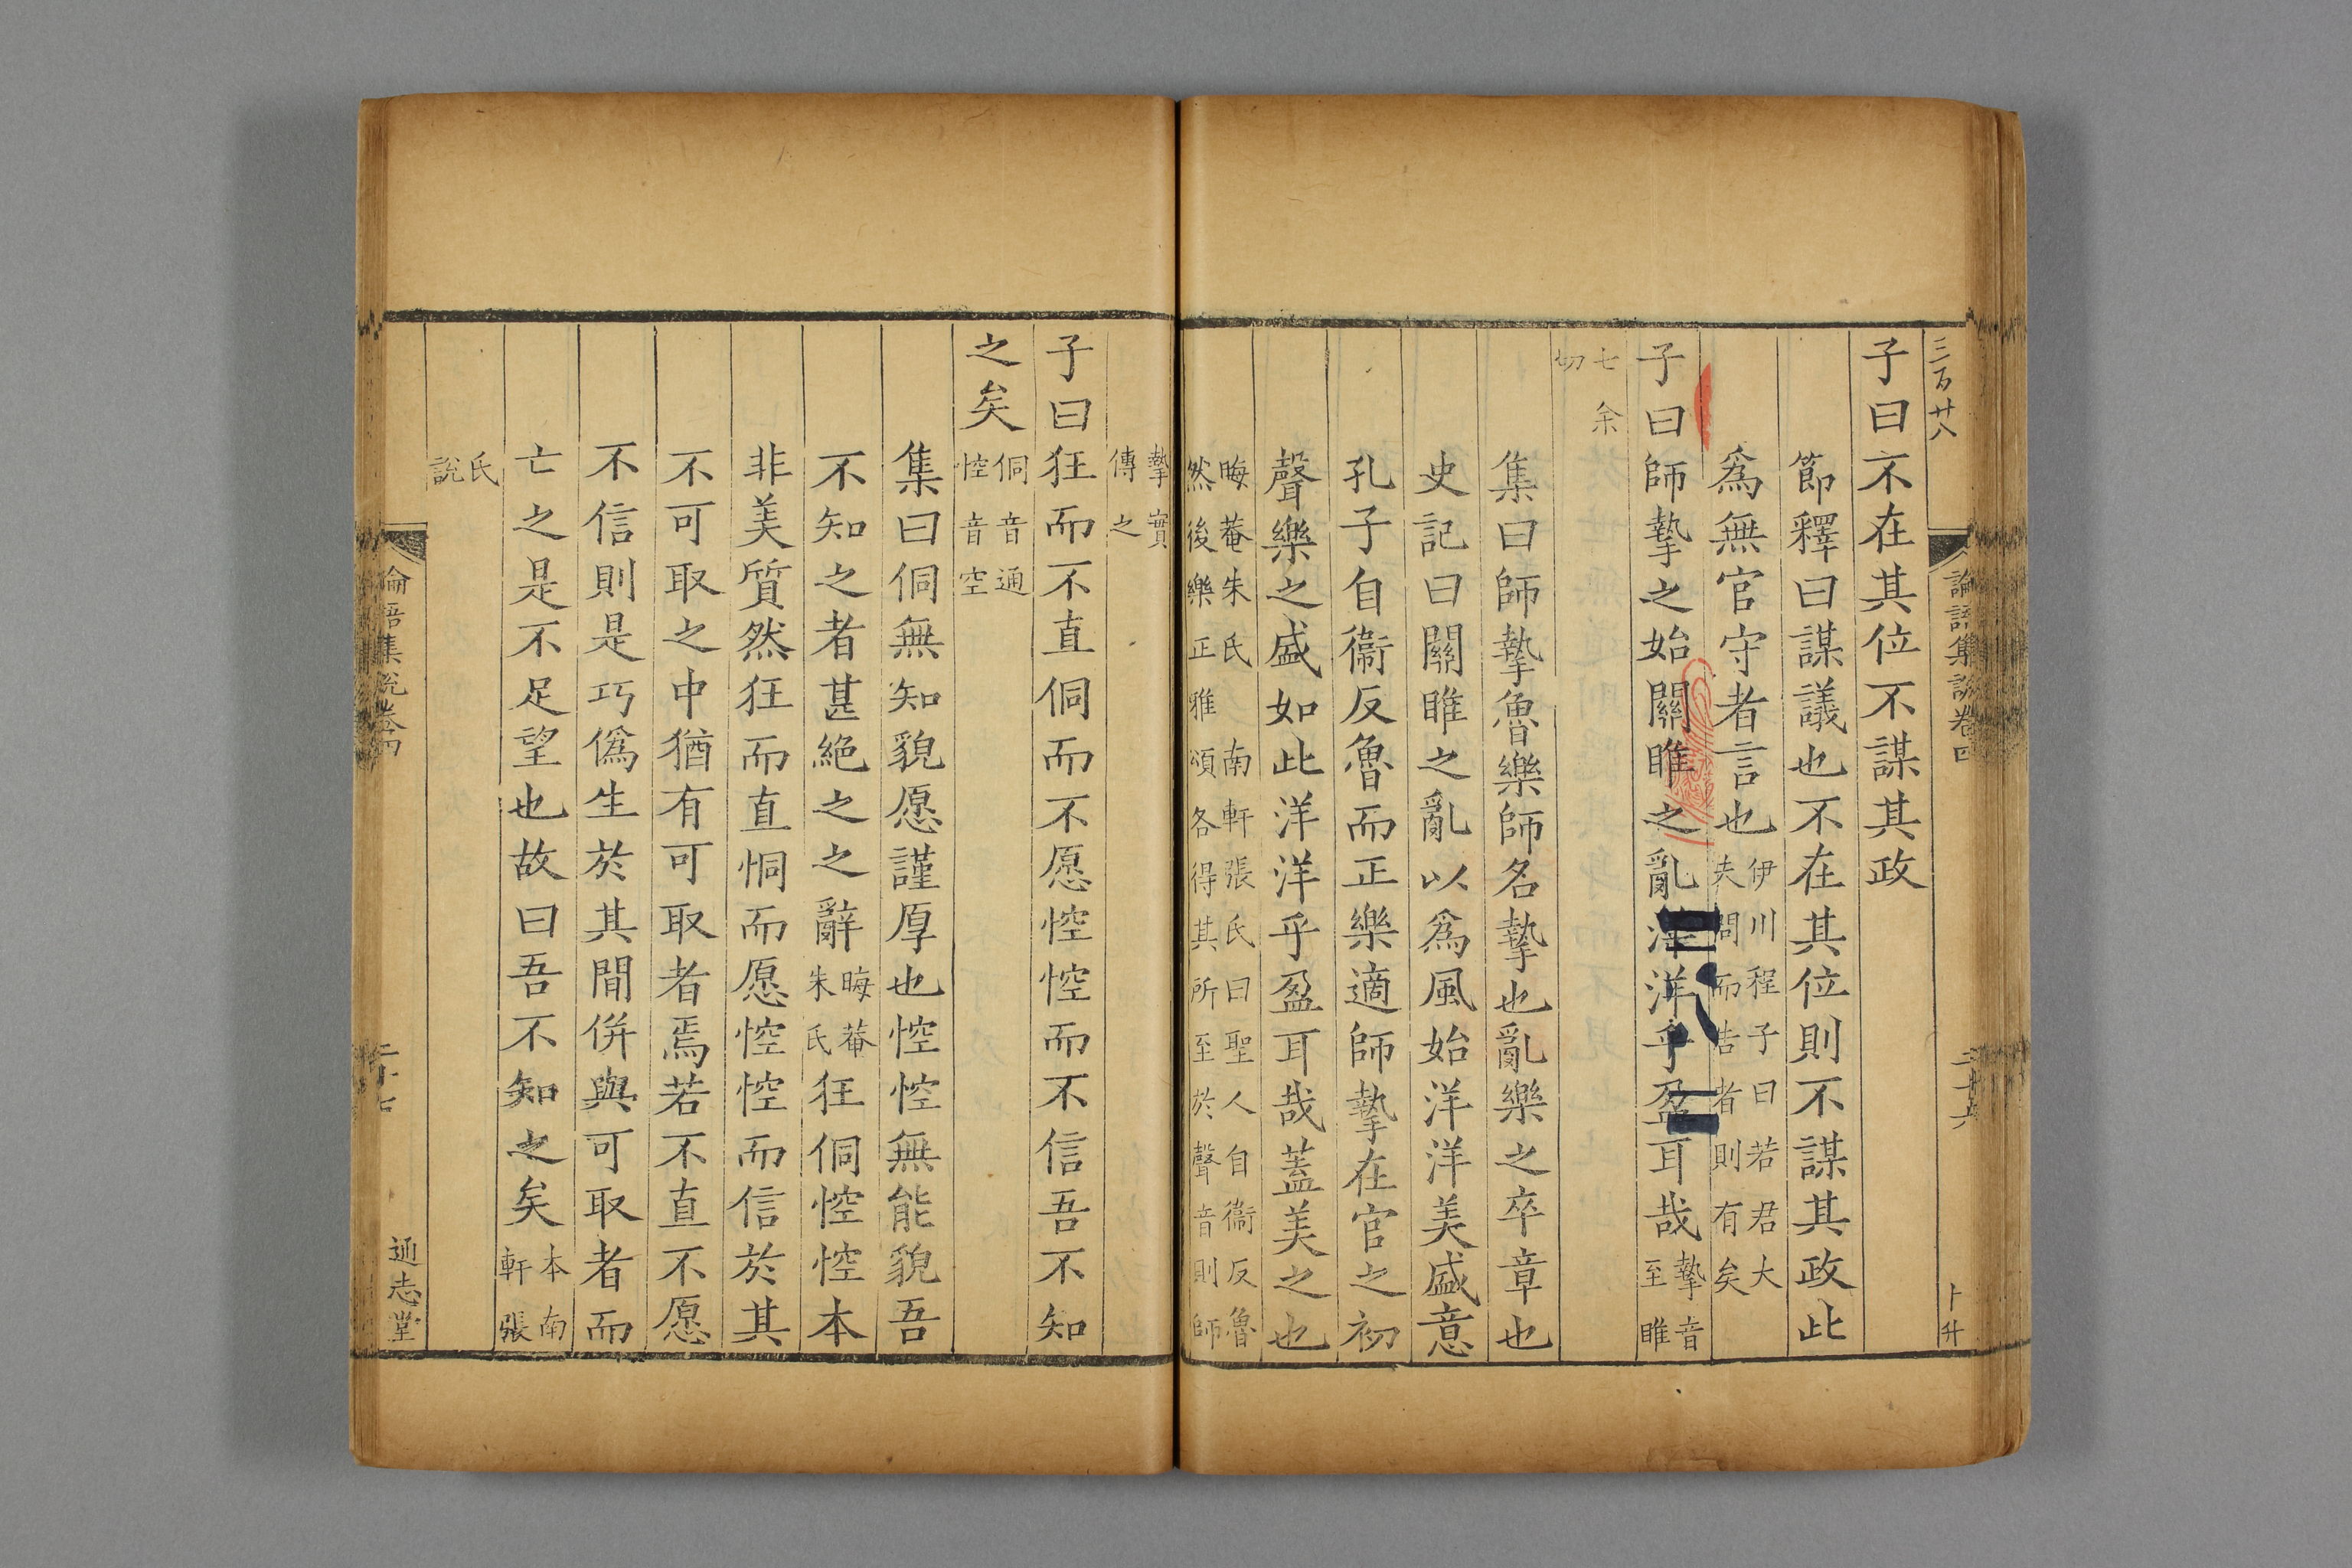 三百廿八
論語集說卷四
二十六
卜升
子曰不在其位不謀其政
節釋曰謀議也不在其位則不謀其政此
爲無官守者言也伊川程子曰若君大
夫問而告者則有矣
子曰師摯之始關雎之亂洋洋乎盈耳哉摯音
至雎
七余
切
集曰師摯魯樂師名摯也亂樂之卒章也
史記曰關雎之亂以爲風始洋洋美盛意
孔子自衞反魯而正樂適師摯在官之初
聲樂之盛如此洋洋乎盈耳哉蓋美之也
晦菴朱氏南軒張氏曰聖人自衞反魯
然後樂正雅頌各得其所至於聲音則師
摯實
傳之
子曰狂而不直侗而不愿悾悾而不信吾不知
之矣侗音通
悾音空
集曰侗無知貌愿謹厚也悾悾無能貌吾
不知之者甚絶之之辭晦菴
朱氏狂侗悾悾本
非美質然狂而直恫而愿悾悾而信於其
不可取之中猶有可取者焉若不直不愿
不信則是巧僞生於其間併與可取者而
亡之是不足望也故曰吾不知之矣本南
軒張
氏
說
論語集說卷四
二十七
通志堂